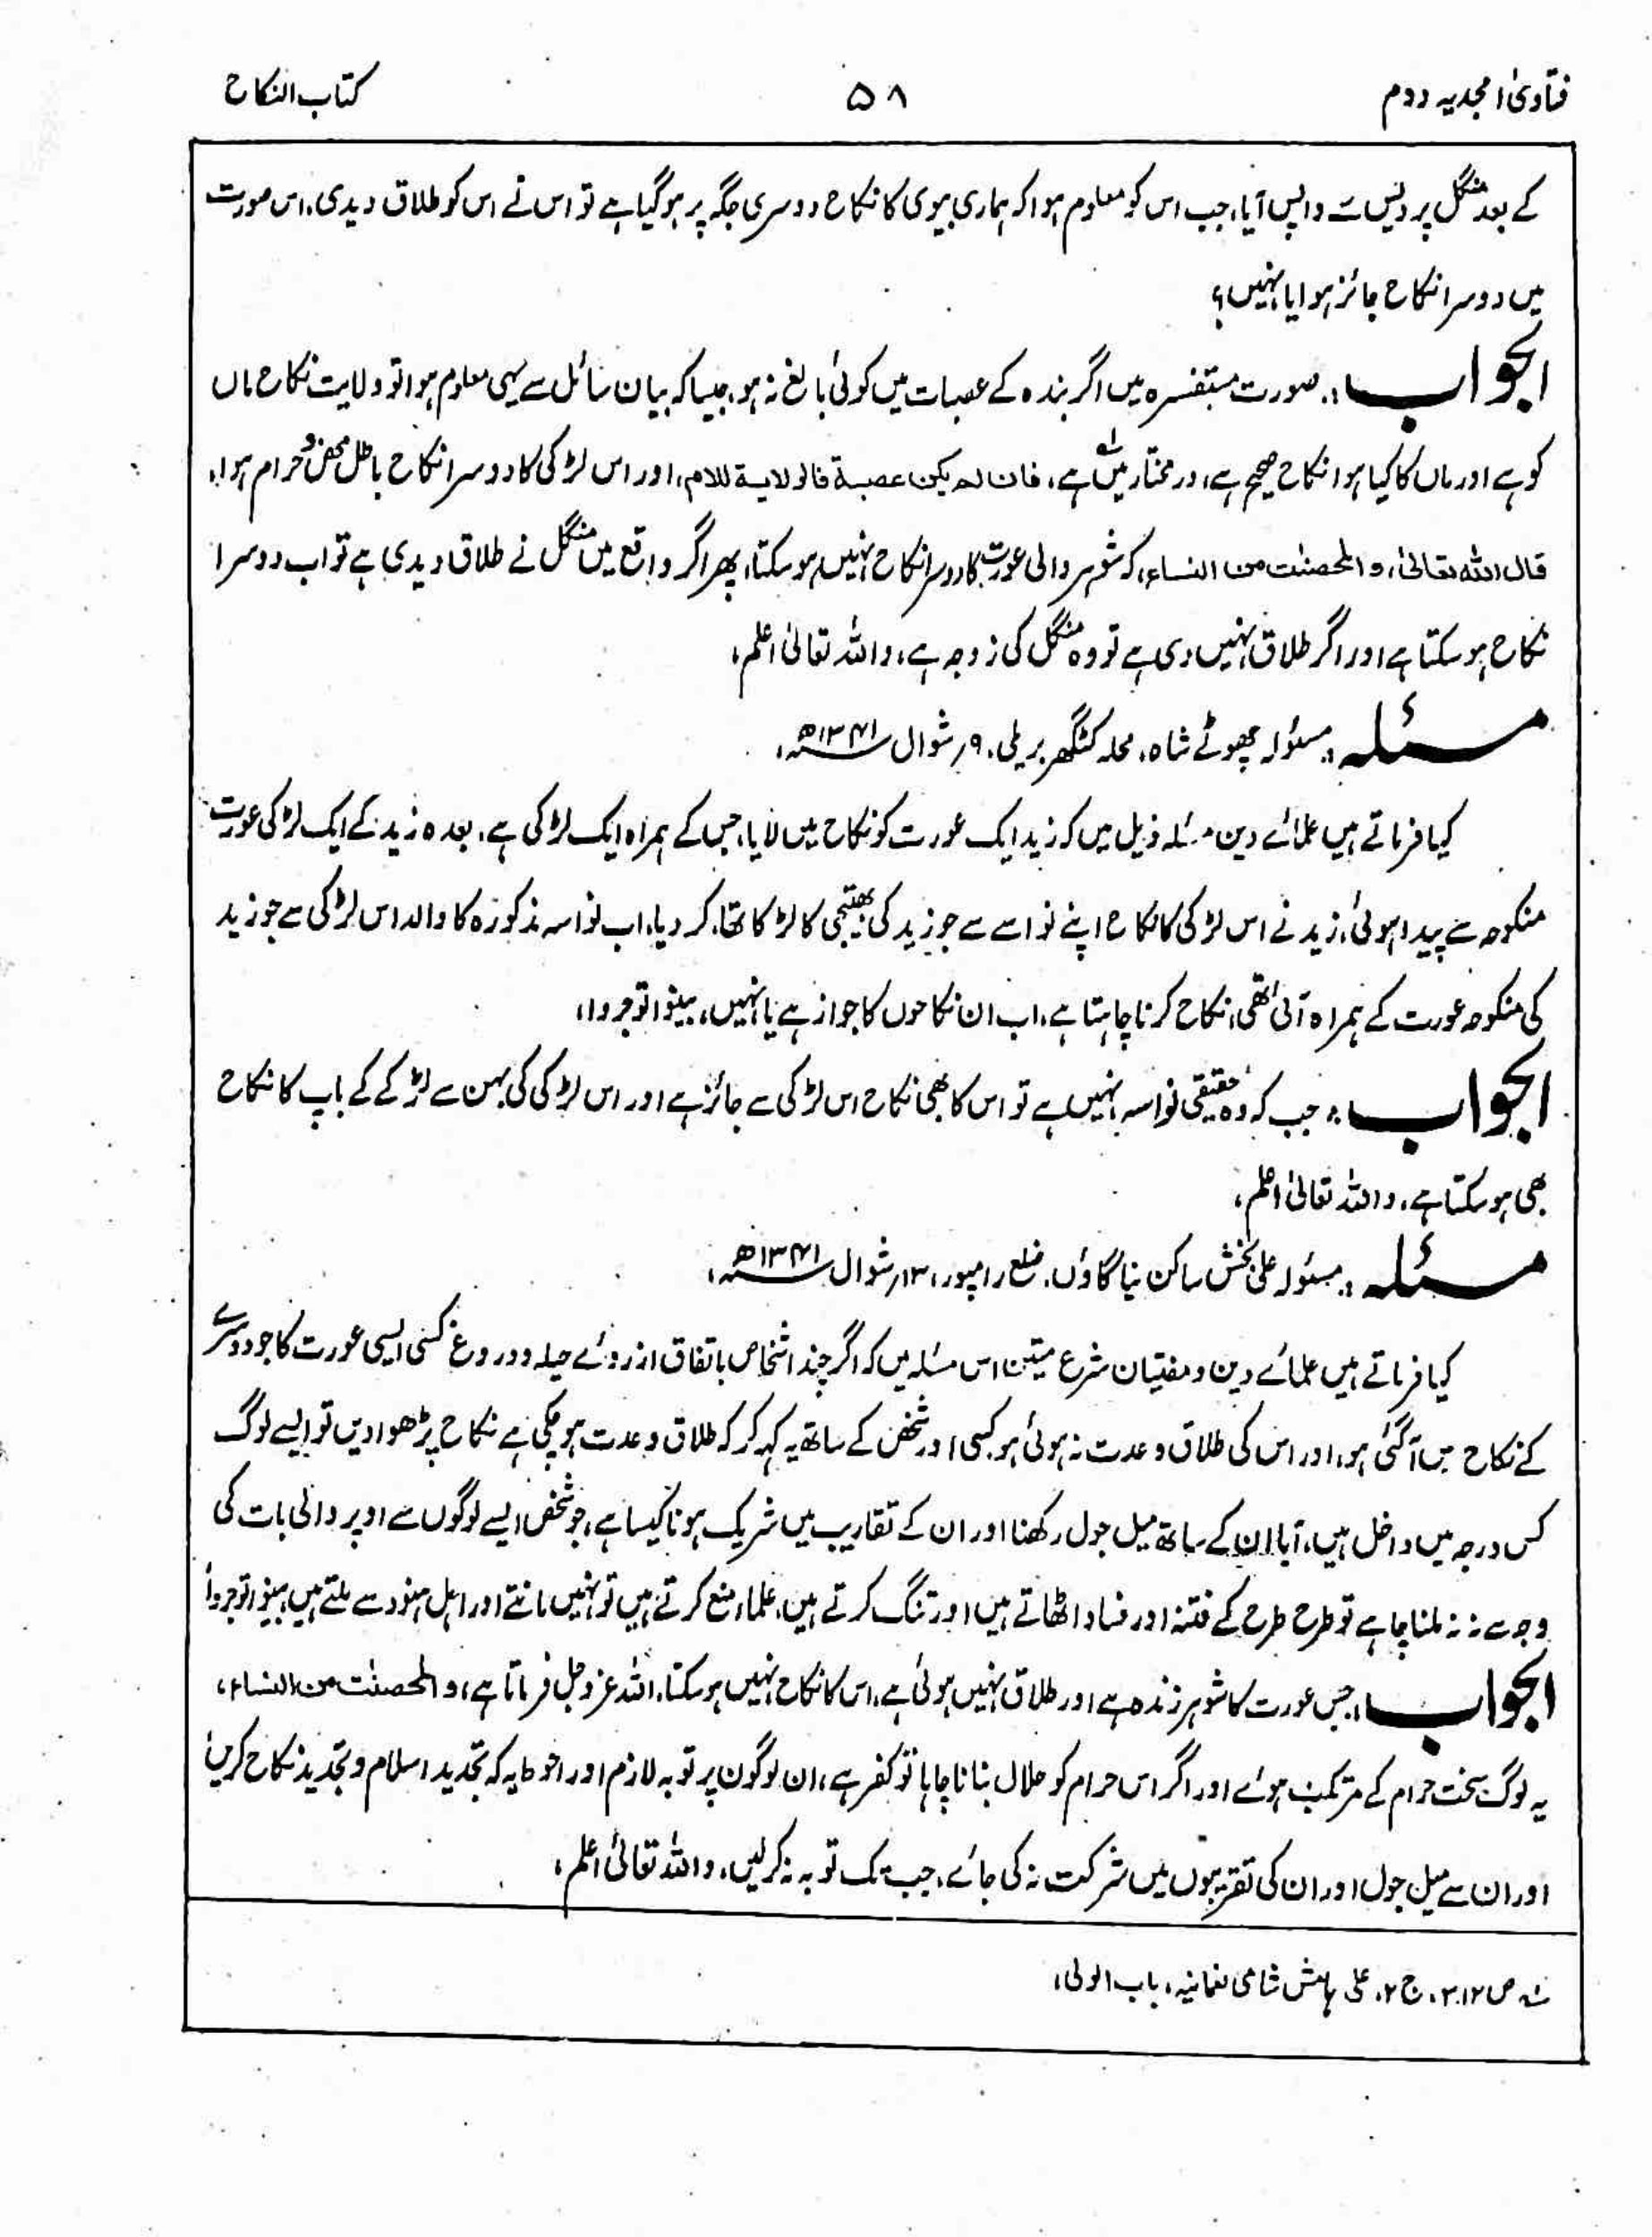 فتاویٰ امجدیہ دوم
۵۸
کتاب النکاح
کے بعد منگل پردیس سے واپس آیا، جب اس کو معلوم ہوا کہ ہماری بیوی کا نکاح دوسری جگہ پر ہوگیا ہے تو اس نے اس کو طلاق دیدی، اس صورت
میں دوسرا نکاح جائز ہوا یا نہیں؟
الجواب :۔ صورت مستفسرہ میں اگر ہندہ کے عصبات میں کوئی بالغ نہ ہو، جیسا کہ بیان سائل سے یہی معلوم ہوا تو ولایت نکاح ماں
کو ہے اور ماں کا کیا ہوا نکاح صحیح ہے، درمختار میں ہے، فان لم یکن عصبة فالولایة للام، اور اس لڑکی کا دوسرا نکاح باطل محض و حرام ہوا،
قال اللہ تعالیٰ، والمحصنٰت من النساء، کہ شوہر والی عورت کا دوسرا نکاح نہیں ہوسکتا، پھر اگر واقع میں منگل نے طلاق دیدی ہے تو اب دوسرا
نکاح ہوسکتا ہے اور اگر طلاق نہیں دی ہے تو وہ منگل کی زوجہ ہے، واللہ تعالیٰ اعلم،
مسئلہ :۔ مسئولہ چھوٹے شاہ، محلہ کٹگھر بریلی، ۹؍ شوال ۱۳۴۱ھ،
کیا فرماتے ہیں علمائے دین مسئلہ ذیل میں کہ زید ایک عورت کو نکاح میں لایا، جس کے ہمراہ ایک لڑکی ہے، بعدہ زید کے ایک لڑکی عورت
منکوحہ سے پیدا ہوئی، زید نے اس لڑکی کا نکاح اپنے نواسے سے جو زید کی بھتیجی کا لڑکا تھا، کردیا، اب نواسہ مذکورہ کا والد اس لڑکی سے جو زید
کی منکوحہ عورت کے ہمراہ آئی تھی، نکاح کرنا چاہتا ہے، اب ان نکاحوں کا جواز ہے یا نہیں، بینوا توجروا،
الجواب :۔ جب کہ وہ حقیقی نواسہ نہیں ہے تو اس کا بھی نکاح اس لڑکی سے جائز ہے اور اس لڑکی کی بہن سے لڑکے کے باپ کا نکاح
بھی ہوسکتا ہے، واللہ تعالیٰ اعلم،
مسئلہ :۔ مسئولہ علی بخش ساکن نیا گاؤں، ضلع رامپور، ۱۳؍ شوال ۱۳۴۱ھ،
کیا فرماتے ہیں علمائے دین و مفتیان شرع متین اس مسئلہ میں کہ اگر چند اشخاص باتفاق ازروئے حیلہ و دروغ کسی ایسی عورت کا جو دوسرے
کے نکاح میں آگئی ہو، اور اس کی طلاق و عدت نہ ہوئی ہو کسی اور شخص کے ساتھ یہ کہہ کر کہ طلاق و عدت ہوچکی ہے نکاح پڑھوادیں تو ایسے لوگ
کس درجہ میں داخل ہیں، آیا ان کے ساتھ میل جول رکھنا اور ان کے تقاریب میں شریک ہونا کیسا ہے، جو شخص ایسے لوگوں سے اوپر والی بات کی
وجہ سے نہ ملنا چاہے تو طرح طرح کے فتنہ اور فساد اٹھاتے ہیں اور تنگ کرتے ہیں، علماء منع کرتے ہیں تو نہیں مانتے اور اہل ہنود سے ملتے ہیں، بینوا توجروا
الجواب :۔ جس عورت کا شوہر زندہ ہے اور طلاق نہیں ہوئی ہے، اس کا نکاح نہیں ہوسکتا، اللہ عزوجل فرماتا ہے، والمحصنٰت من النساء،
یہ لوگ سخت حرام کے مرتکب ہوئے اور اگر اس حرام کو حلال بنانا چاہا تو کفر ہے، ان لوگوں پر توبہ لازم اور احوط یہ کہ تجدید اسلام و تجدید نکاح کریں
اور ان سے میل جول اور ان کی تقریبوں میں شرکت نہ کی جائے، جب تک توبہ نہ کرلیں، واللہ تعالیٰ اعلم،
ص ۳۱۲، ج ۲، علی ہامش شامی نعمانیہ، باب الولی،